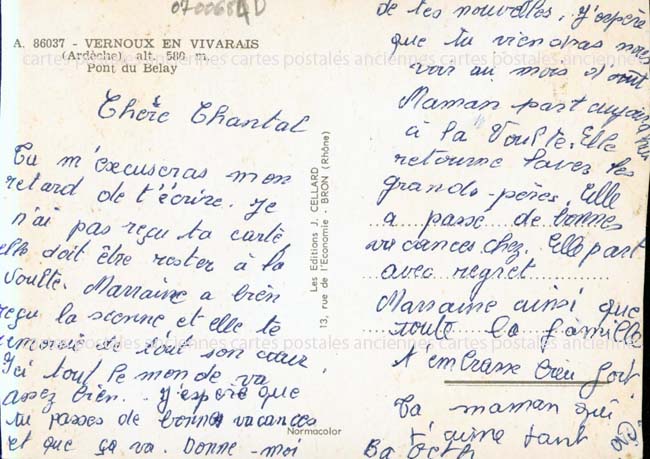 0700684D
A. 86037 - VERNOUX EN VIVARAIS
(Ardèche) alt. 580 m.
Pont du Belay
cartes postales anciennes cartes postales anciennes cartes postales anciennes
Chère Chantal
Tu m'excuseras mon
retard de t'écrire. Je
n'ai pas reçu ta carte,
elle doit être rester à la
Voulte. Marraine a bien
reçu la sienne et elle te
remercie de tout son cœur
Ici tout le monde va
assez bien. J'espère que
tu passes de bonnes vacances
et que ça va. Donne-moi
Les Editions J. CELLARD
13, rue de l'Economie - BRON (Rhône)
Normacolor
de tes nouvelles, j'espère
que tu viendras nous
voir au mois d'août
Maman part aujourd'hui
à la Voulte. Elle
retourne laver les
grands-pères. Elle
a passé de bonnes
vacances chez. Elle part
avec regret
Marraine ainsi que
toute la famille
t'embrasse bien fort
Ta maman qui
t'aime tant
cartes postales anciennes cartes postales anciennes cartes postales anciennes